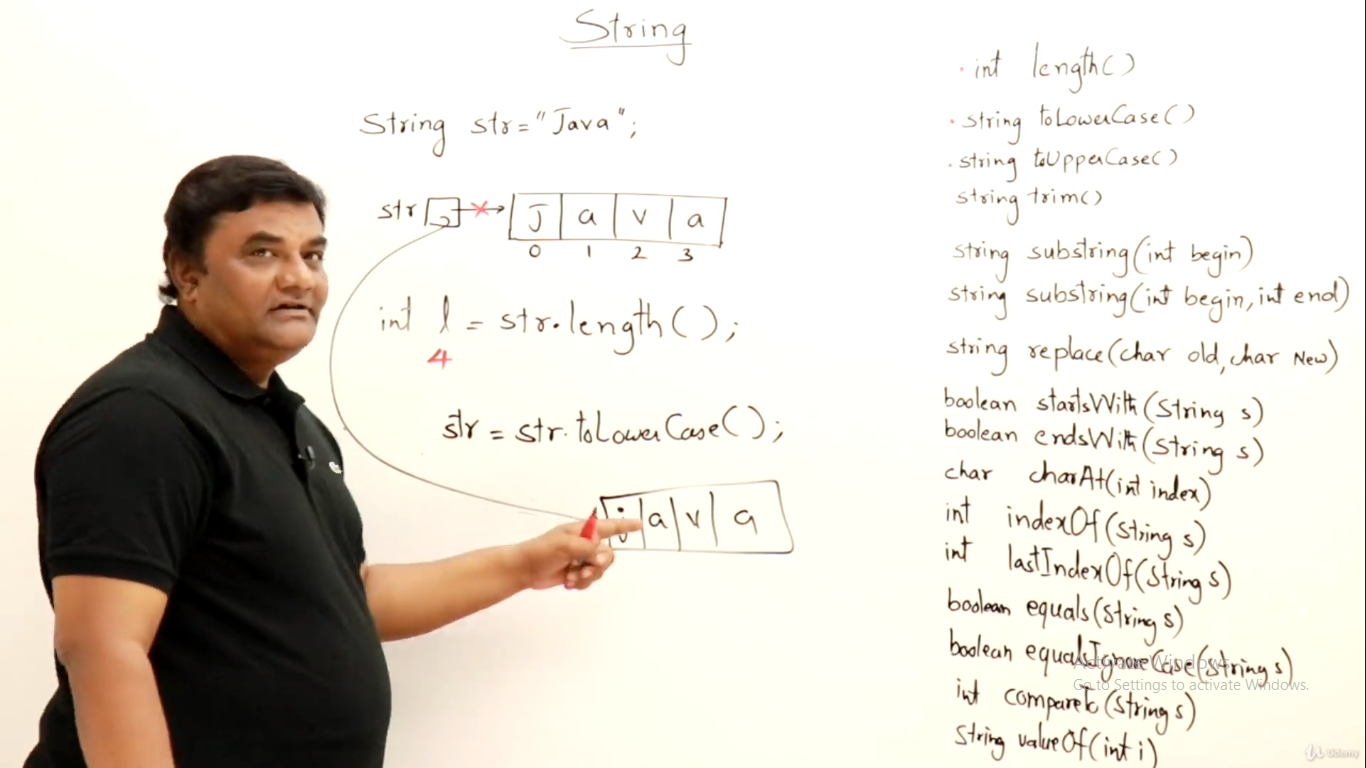 String
String str="Java";
str
J a v a
0 1 2 3
int l = str.length();
4
str = str.toLowerCase();
j a v a
int length()
string toLowerCase()
string toUpperCase()
string trim()
string substring(int begin)
string substring(int begin, int end)
string replace(char old, char New)
boolean startsWith(String s)
boolean endsWith(String s)
char charAt(int index)
int indexOf(String s)
int lastIndexOf(String s)
boolean equals(String s)
boolean equalsIgnoreCase(String s)
int compareTo(String s)
string valueOf(int i)
Activate Windows
Go to Settings to activate Windows.
Udemy